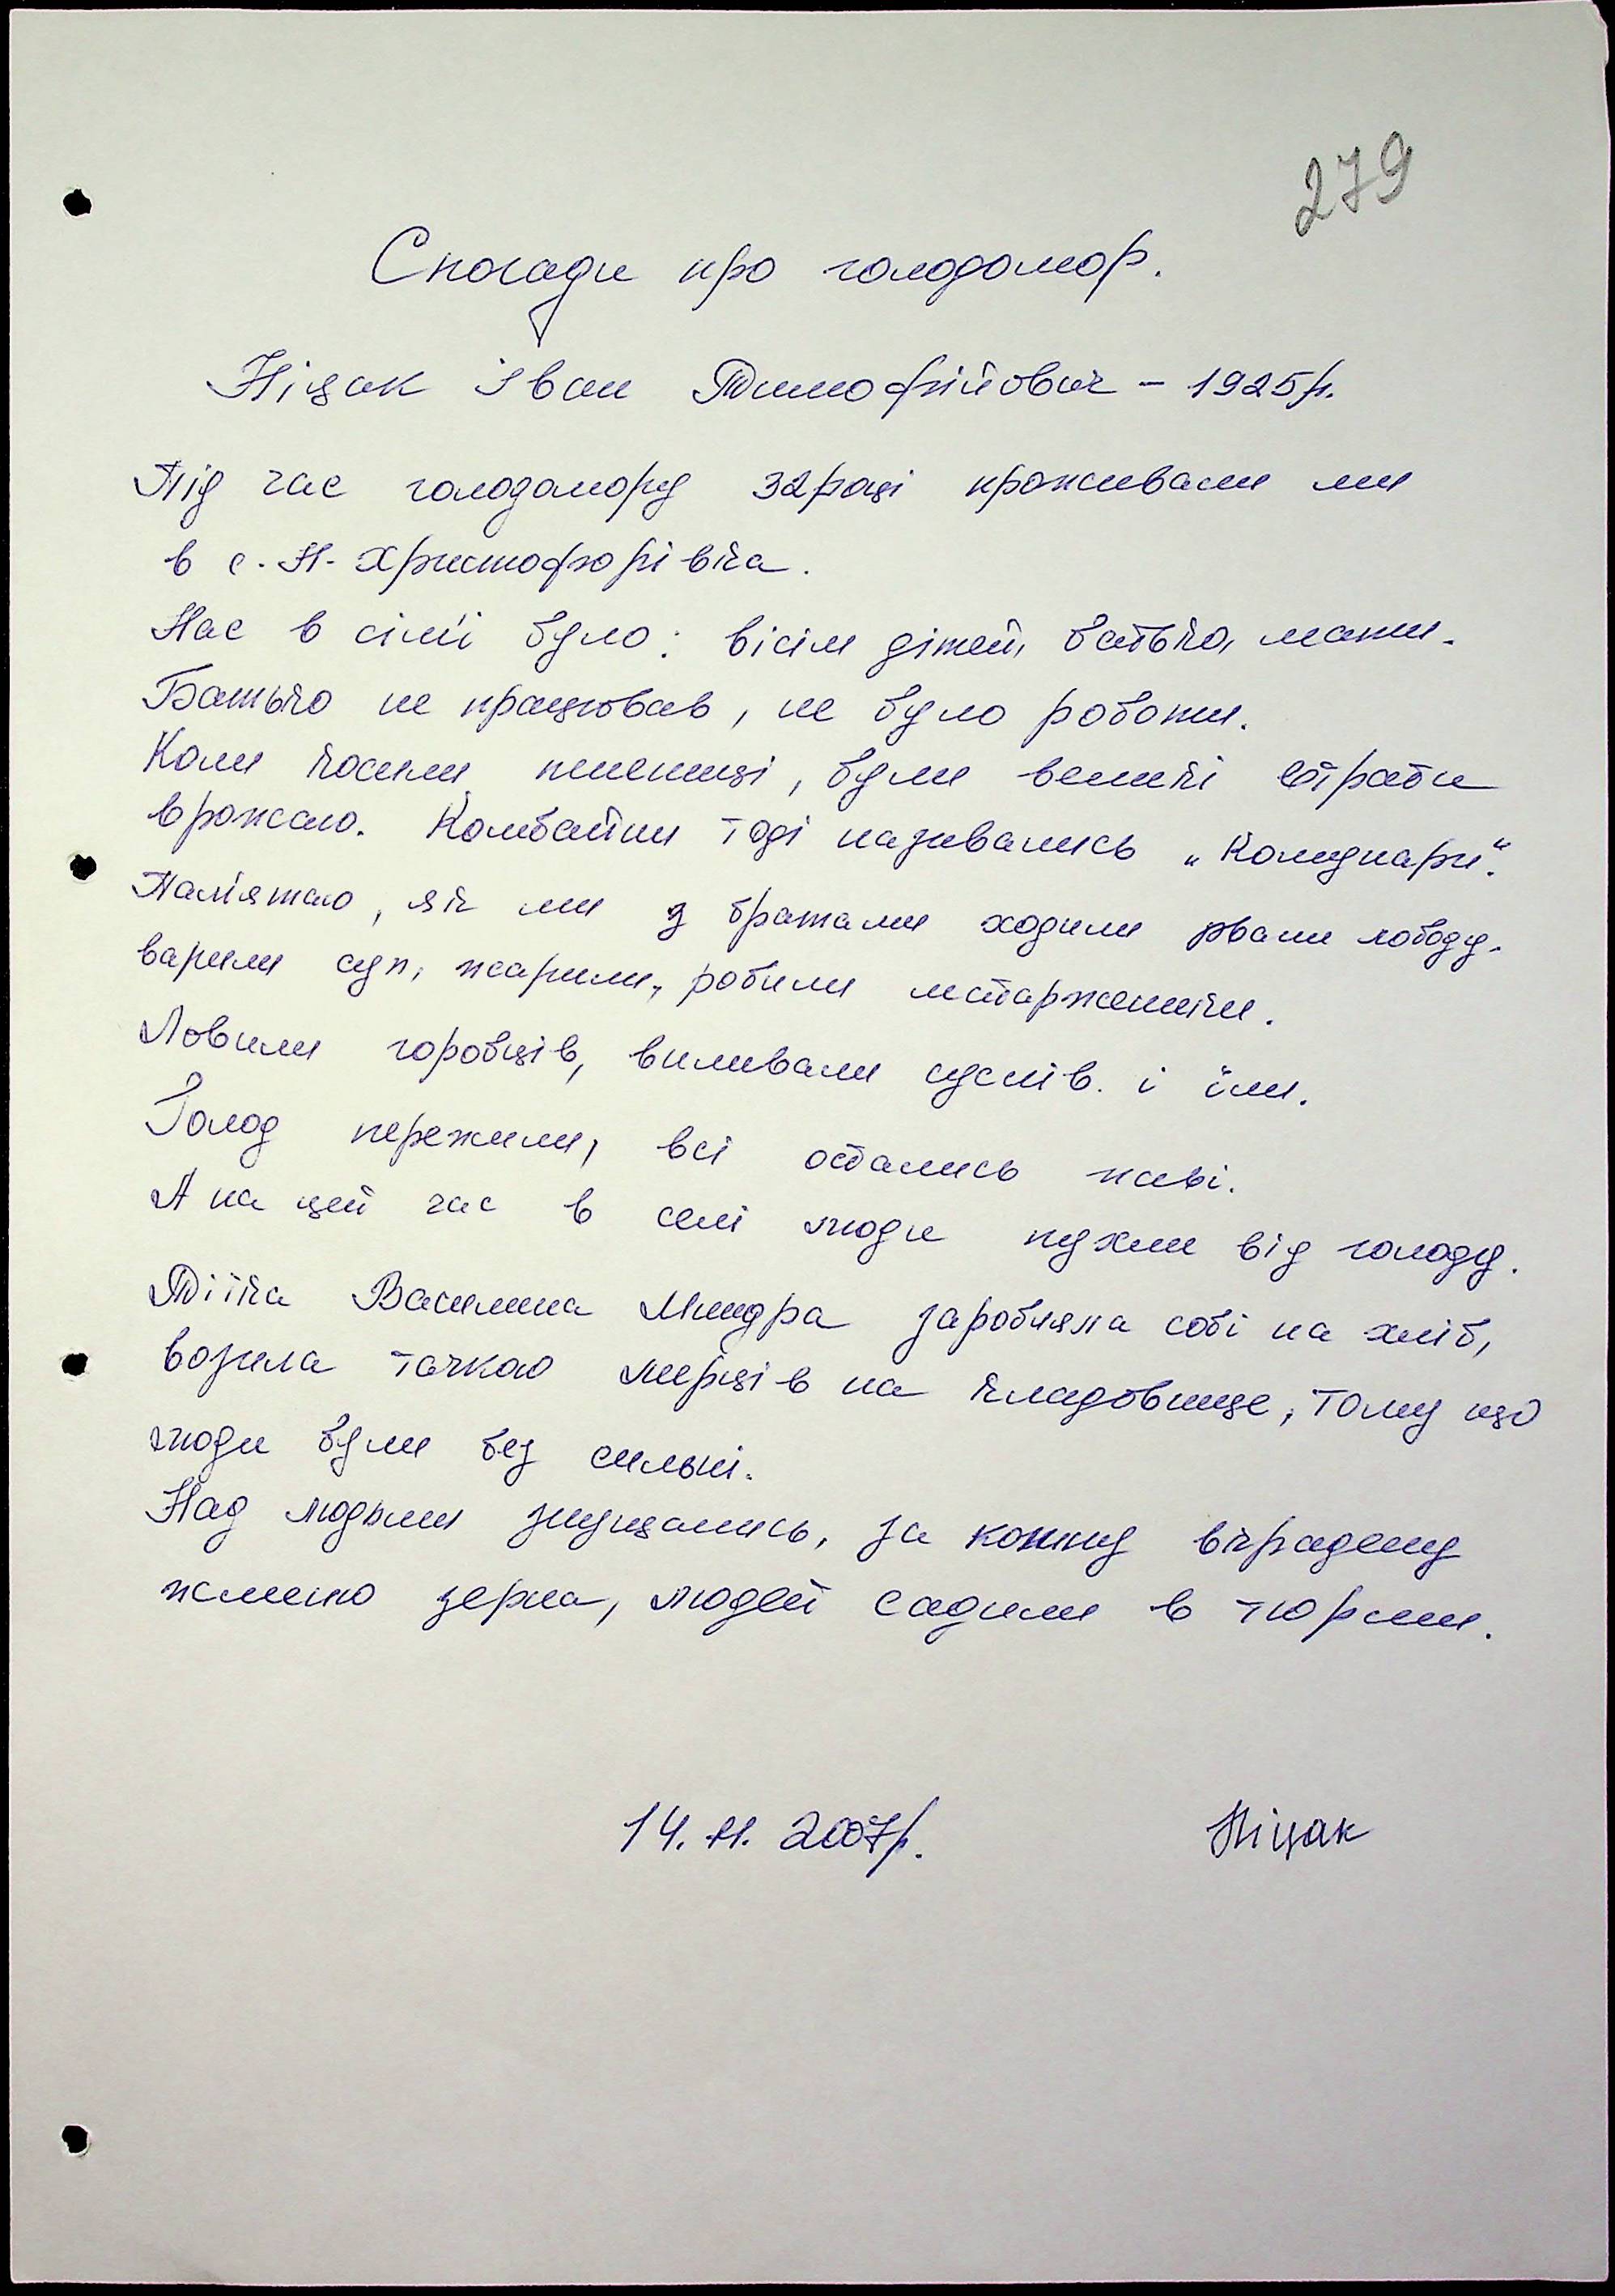 279
Спогади про голодомор.
Ніцак Іван Тимофійович - 1925р.
Під час голодомору 32році проживали ми
в с. Н-Христофорівка.
Нас в сім'ї було: вісім дітей, батько, мати.
Батько не працював, не було роботи.
Коли косили пшениці, були великі страти
врожаю. Комбайни тоді називались „Комунари".
Пам'ятаю, як ми з братами ходили рвали лободу.
варили суп, жарили, робили
Ловили горобців, виливали суслів. і їли.
Голод пережили, всі остались живі.
А на цей час в селі люди пухли від голоду.
Тітка Василина заробляла собі на хліб,
возила тачкою мерців на кладовище, тому що
люди були без сильні.
Над людьми знущались, за кожну вкрадену
жменю зерна, людей садили в тюрми.
14.11.2007р. Ніцак